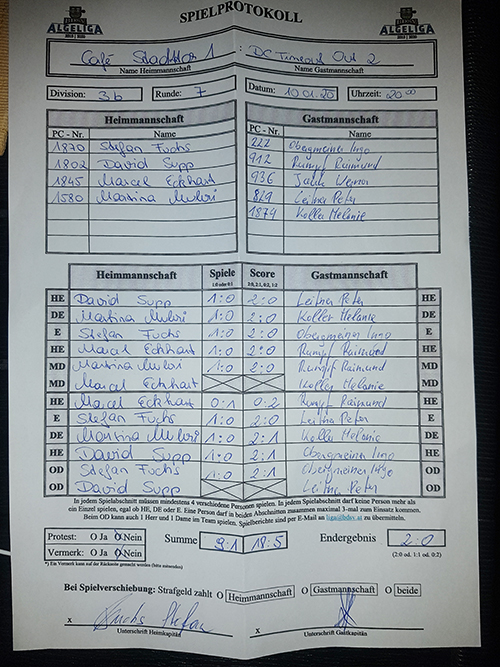 SPIELPROTOKOLL
ALGELIGA ALGELIGA
Café Stadttor 1 : DC Timeout Out 2
Name Heimmannschaft Name Gastmannschaft
Division: 3b Runde: 7 Datum: 10.01.20 Uhrzeit: 20:00
Heimmannschaft Gastmannschaft
PC - Nr. Name PC - Nr. Name
1870 Stefan Fuchs 222 Obergmeiner Ingo
1802 David Supp 912 Rumpf Raimund
1845 Marcel Eckhart 936 Werner
1580 Martina 829 Leitna Peter
1874 Koller Melanie
Heimmannschaft Spiele Score Gastmannschaft
1:0 oder 0:1 2:0, 2:1, 0:2, 1:2
HE David Supp 1:0 2:0 Leitna Peter HE
DE Martina 1:0 2:0 Koller Melanie DE
E Stefan Fuchs 1:0 2:0 Obergmeiner Ingo E
HE Marcel Eckhart 1:0 2:0 Rumpf Raimund HE
MD Martina 1:0 2:0 Rumpf Raimund MD
MD Marcel Eckhart Koller Melanie MD
HE Marcel Eckhart 0:1 0:2 Rumpf Raimund HE
E Stefan Fuchs 1:0 2:0 Leitna Peter E
DE Martina 1:0 2:1 Koller Melanie DE
HE David Supp 1:0 2:1 Obergmeiner Ingo HE
OD Stefan Fuchs 1:0 2:1 Obergmeiner Ingo OD
OD David Supp Leitna Peter OD
In jedem Spielabschnitt müssen mindestens 4 verschiedene Personen spielen. In jedem Spielabschnitt darf keine Person mehr als
ein Einzel spielen, egal ob HE, DE oder E. Eine Person darf in beiden Abschnitten zusammen maximal 3-mal zum Einsatz kommen.
Beim OD kann auch 1 Herr und 1 Dame im Team spielen. Spielberichte sind per E-Mail an liga@bdsv.at zu übermitteln.
Protest: O Ja O Nein Summe 9:1 18:5 Endergebnis 2:0
Vermerk: O Ja O Nein (2:0 od. 1:1 od. 0:2)
*) Ein Vermerk kann auf der Rückseite gemacht werden (bitte ankreuzen)
Bei Spielverschiebung: Strafgeld zahlt O Heimmannschaft O Gastmannschaft O beide
x Fuchs Stefan x
Unterschrift Heimkapitän Unterschrift Gastkapitän